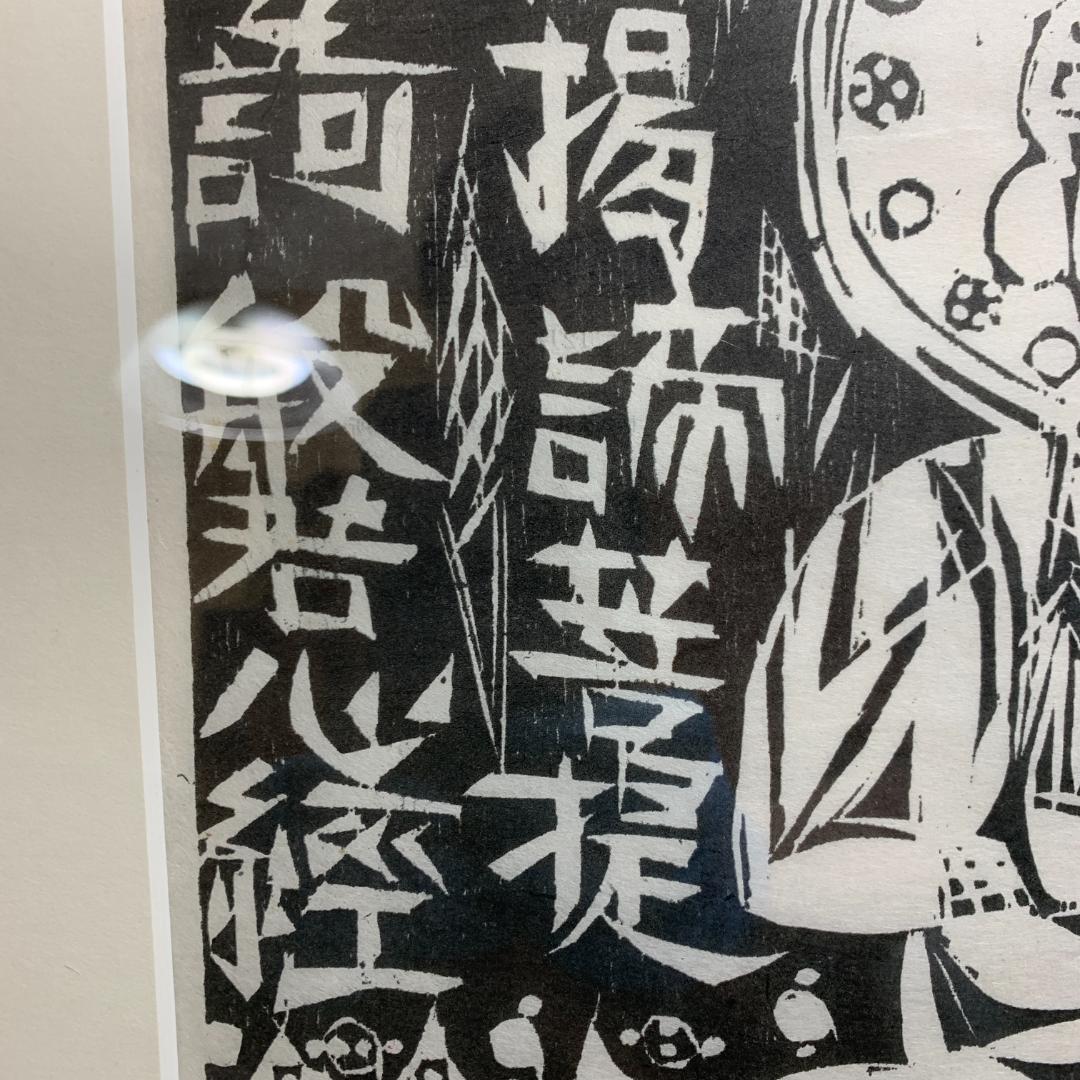 揭諦菩提
訶般若心經